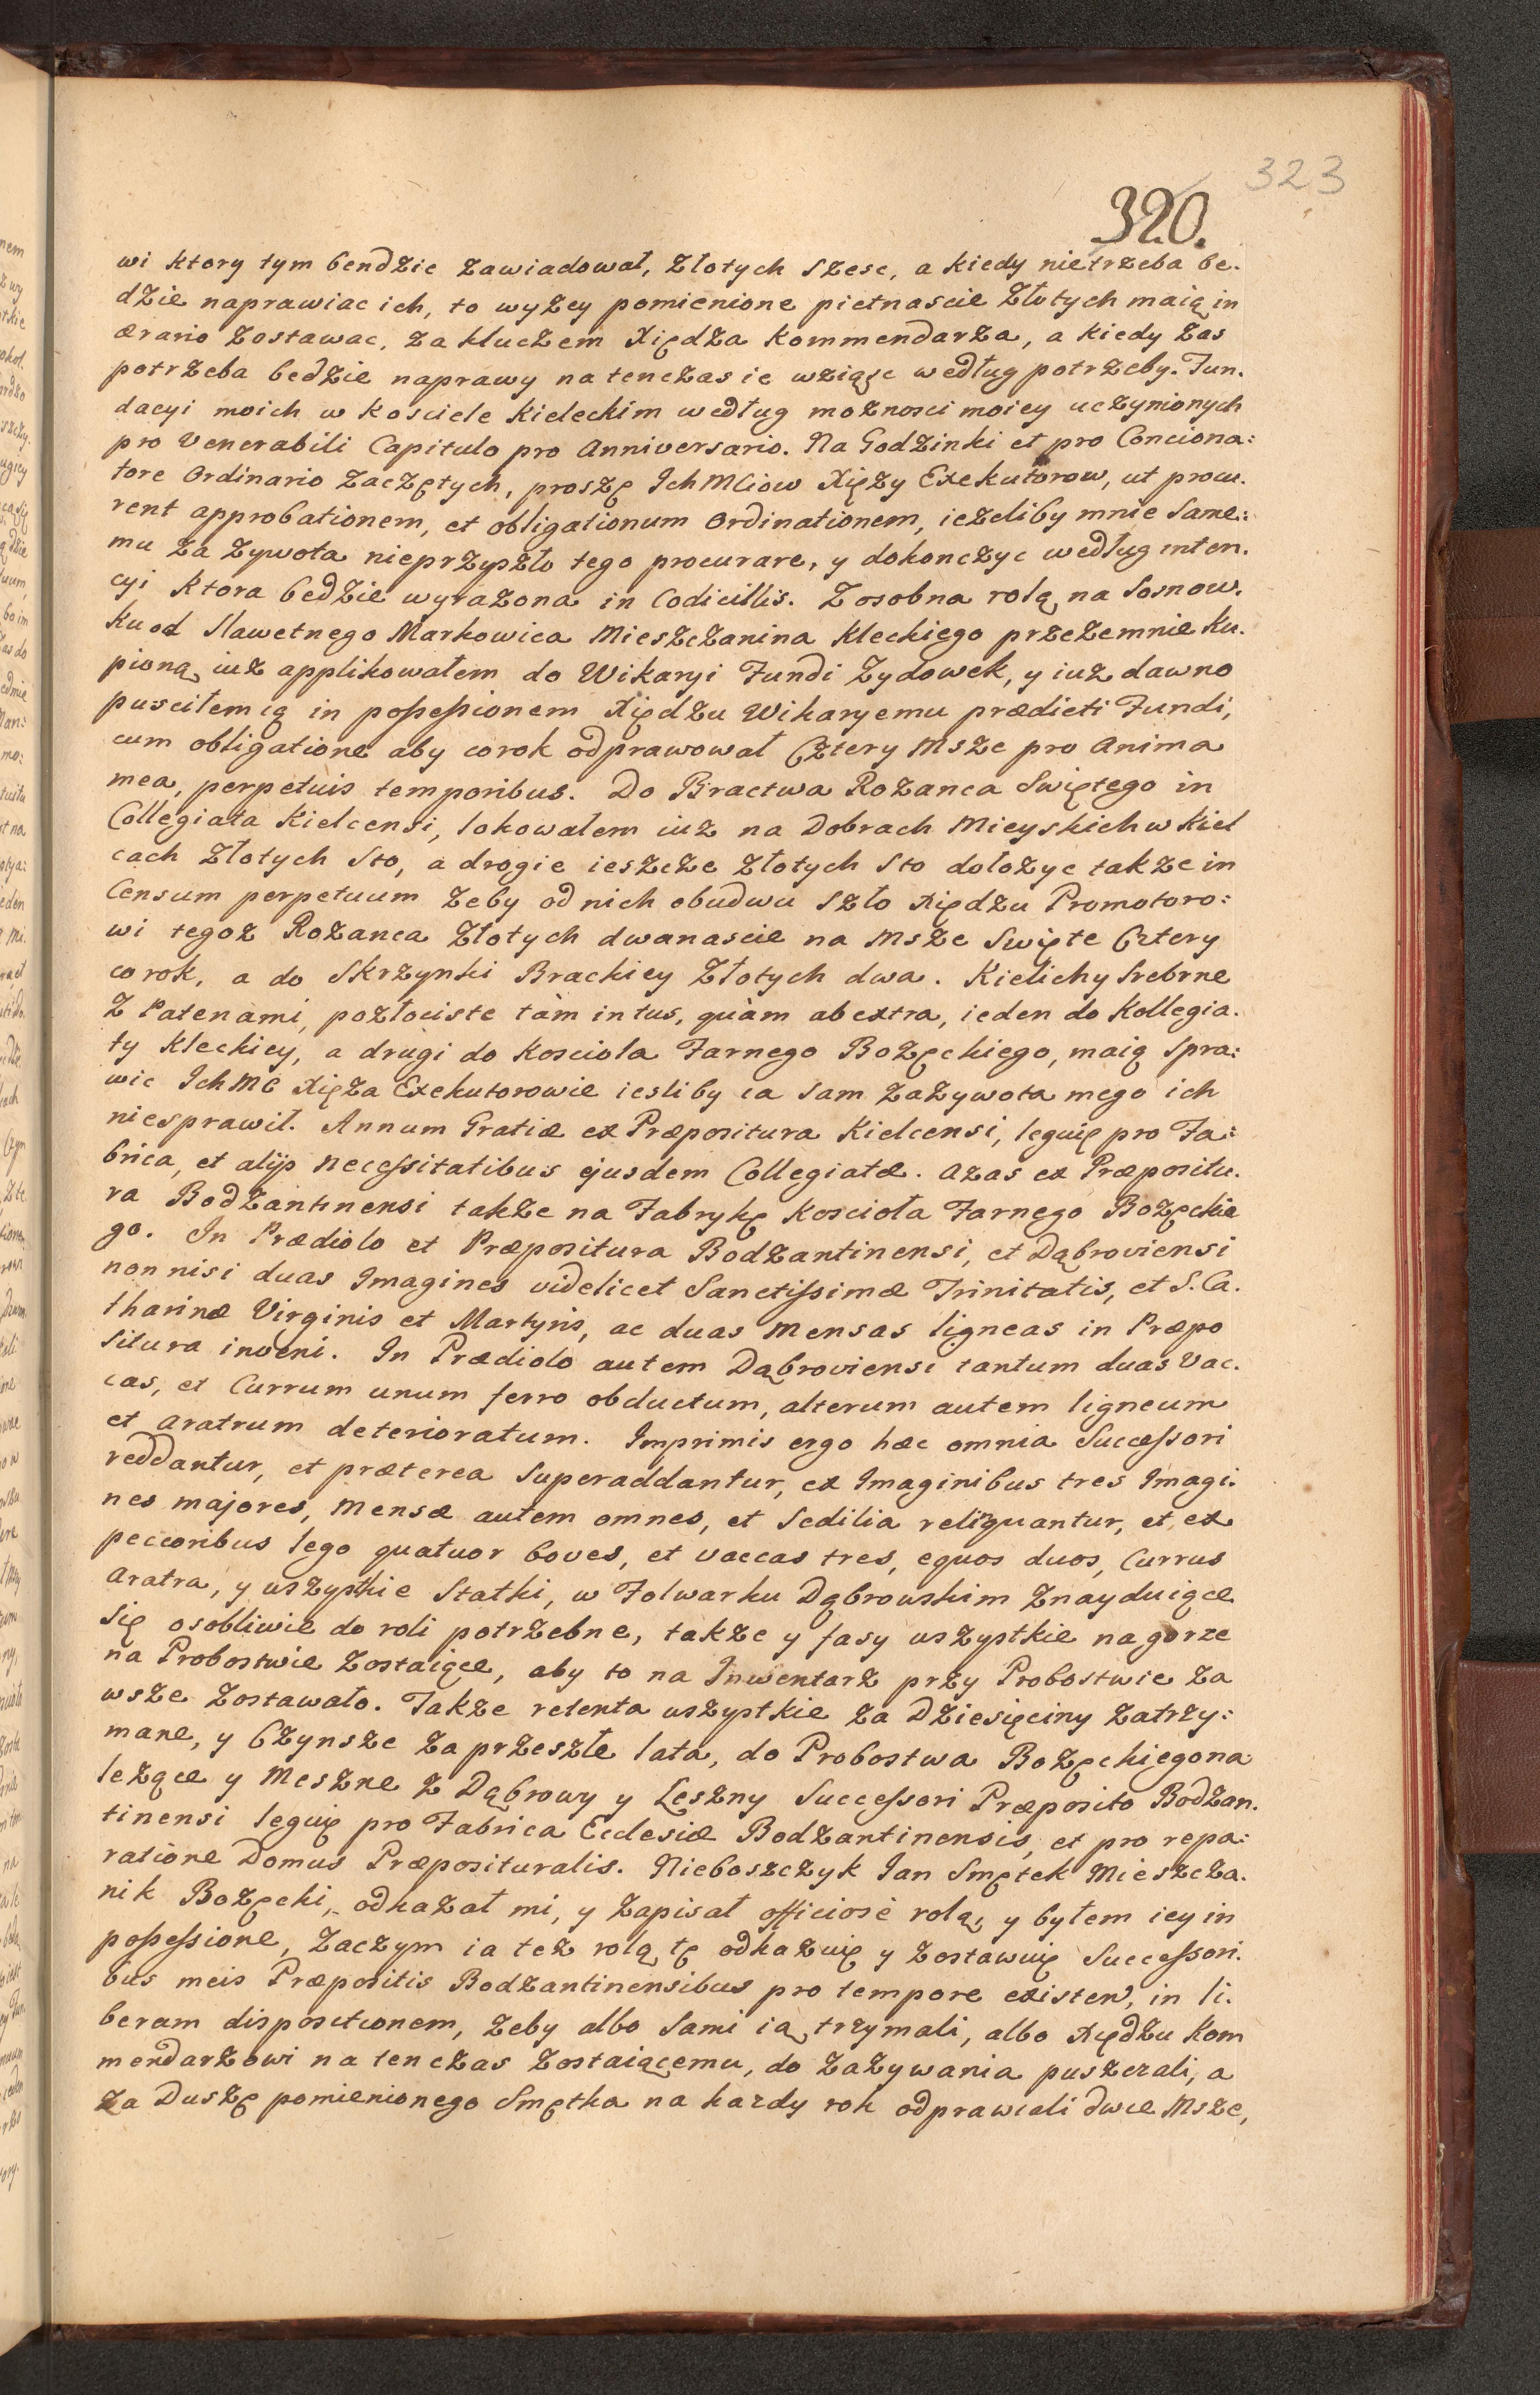 323
320.
wi ktory tym bendzie zawiadował, Złotych szesc, a kiedy nietrzeba be-
dzie naprawiac ich, to wyżey pomienione pietnascie Złotych maią in
ærario zostawac, za kluczem Xiędza Kommendarza, a kiedy zas
potrzeba bedzie naprawy na tenczas ie wziąsc według potrzeby. Fun-
dacyi moich w Kosciele Kieleckim według możnosci moiey uczynionych
pro Venerabili Capitulo pro Anniversario. Na Godzinki et pro Conciona:
tore Ordinario zaczętych, proszę Ich Mciow Xięży Exekutorow, ut procu-
rent approbationem, et obligationum Ordinationem, ieżeliby mnie same:
mu za żywota nieprzyszło tego procurare, y dokonczyc według inten-
cyi ktora bedzie wyrażona in Codicillis. Z osobna rolą na Sosnow-
ku od Sławetnego Markowica Mieszczanina Kleckiego przezemnie ku-
pioną, iuż applikowałem do Wikaryi Fundi Zydowek, y iuż dawno
pusciłem ią in possessionem Xiędzu Wikaryemu prædicti Fundi,
cum obligatione aby corok odprawował Cztery Msze pro Anima
mea, perpetuis temporibus. Do Bractwa Rożanca Swiętego in
Collegiata Kielcensi, lokowałem iuż na Dobrach Mieyskich w Kiel
cach Złotych sto, a drogie ieszcze Złotych sto dołożyc także in
Censum perpetuum żeby od nich obudwu szło Xiędzu Promotoro:
wi tegoż Rożanca Złotych dwanascie na Msze Swięte Cztery
corok, a do Skrzynki Brackiey Złotych dwa. Kielichy srebrne
z Patenami, pozłociste tàm intus, quàm ab extra, ieden do Kollegia-
ty Kleckiey, a drugi do Kosciola Farnego Bożęckiego, maią spra:
wic Ich Mc Xięża Exekutorowie iesliby ia sam zażywota mego ich
niesprawił. Annum Gratiæ ex Præpositura Kielcensi, leguię pro Fa:
brica, et alijs necessitatibus ejusdem Collegiatæ. Azas ex Præpositu-
ra Bodzantinensi także na Fabrykę Kosciola Farnego Bożęckie
go. In Prædiolo et Præpositura Bodzantinensi, et Dąbroviensi
non nisi duas Imagines videlicet Sanctissimæ Trinitatis, et S. Ca-
tharinæ Virginis et Martyris, ac duas mensas ligneas in Præpo
situra inveni. In Prædiolo autem Dąbroviensi tantum duas Vac-
cas, et Currum unum ferro obductum, alterum autem ligneum
et aratrum deterioratum. Imprimis ergo hæc omnia Successori
reddantur, et præterea superaddantur, ex Imaginibus tres Imagi-
nes majores, mensæ autem omnes, et sedilia relinquantur, et ex
peccoribus lego quatuor boves, et vaccas tres, equos duos, Currus
aratra, y wszystkie Statki, w Folwarku Dąbrowskim znayduiące
się osobliwie do roli potrzebne, także y fasy wszystkie na gorze
na Probostwie zostaiące, aby to na Inwentarz przy Probostwie za
wsze zostawało. Także retenta wszystkie za Dziesięciny zatrzy:
mane, y Czynsze za przeszłe lata, do Probostwa Bożęckiego na
leżące y Meszne z Dąbrowy y Leszny Successori Præposito Bodzan-
tinensi leguię pro Fabrica Ecclesiæ Bodzantinensis, et pro repa:
ratione Domus Præposituralis. Nieboszczyk Jan Smętek Mieszcza-
nik Bożęcki, odkazał mi, y zapisał officiosè rolą, y byłem iey in
possessione, zaczym ia też rolą tę odkazuię y zostawuię Successori-
bus meis Præpositis Bodzantinensibus pro tempore existen, in li-
beram dispositionem, żeby albo sami ią trzymali, albo Xiędzu Kom
mendarzowi na tenczas zostaiącemu, do zażywania puszczali, a
za Duszę pomienionego Smętka na kazdy rok odprawiali dwie Msze,